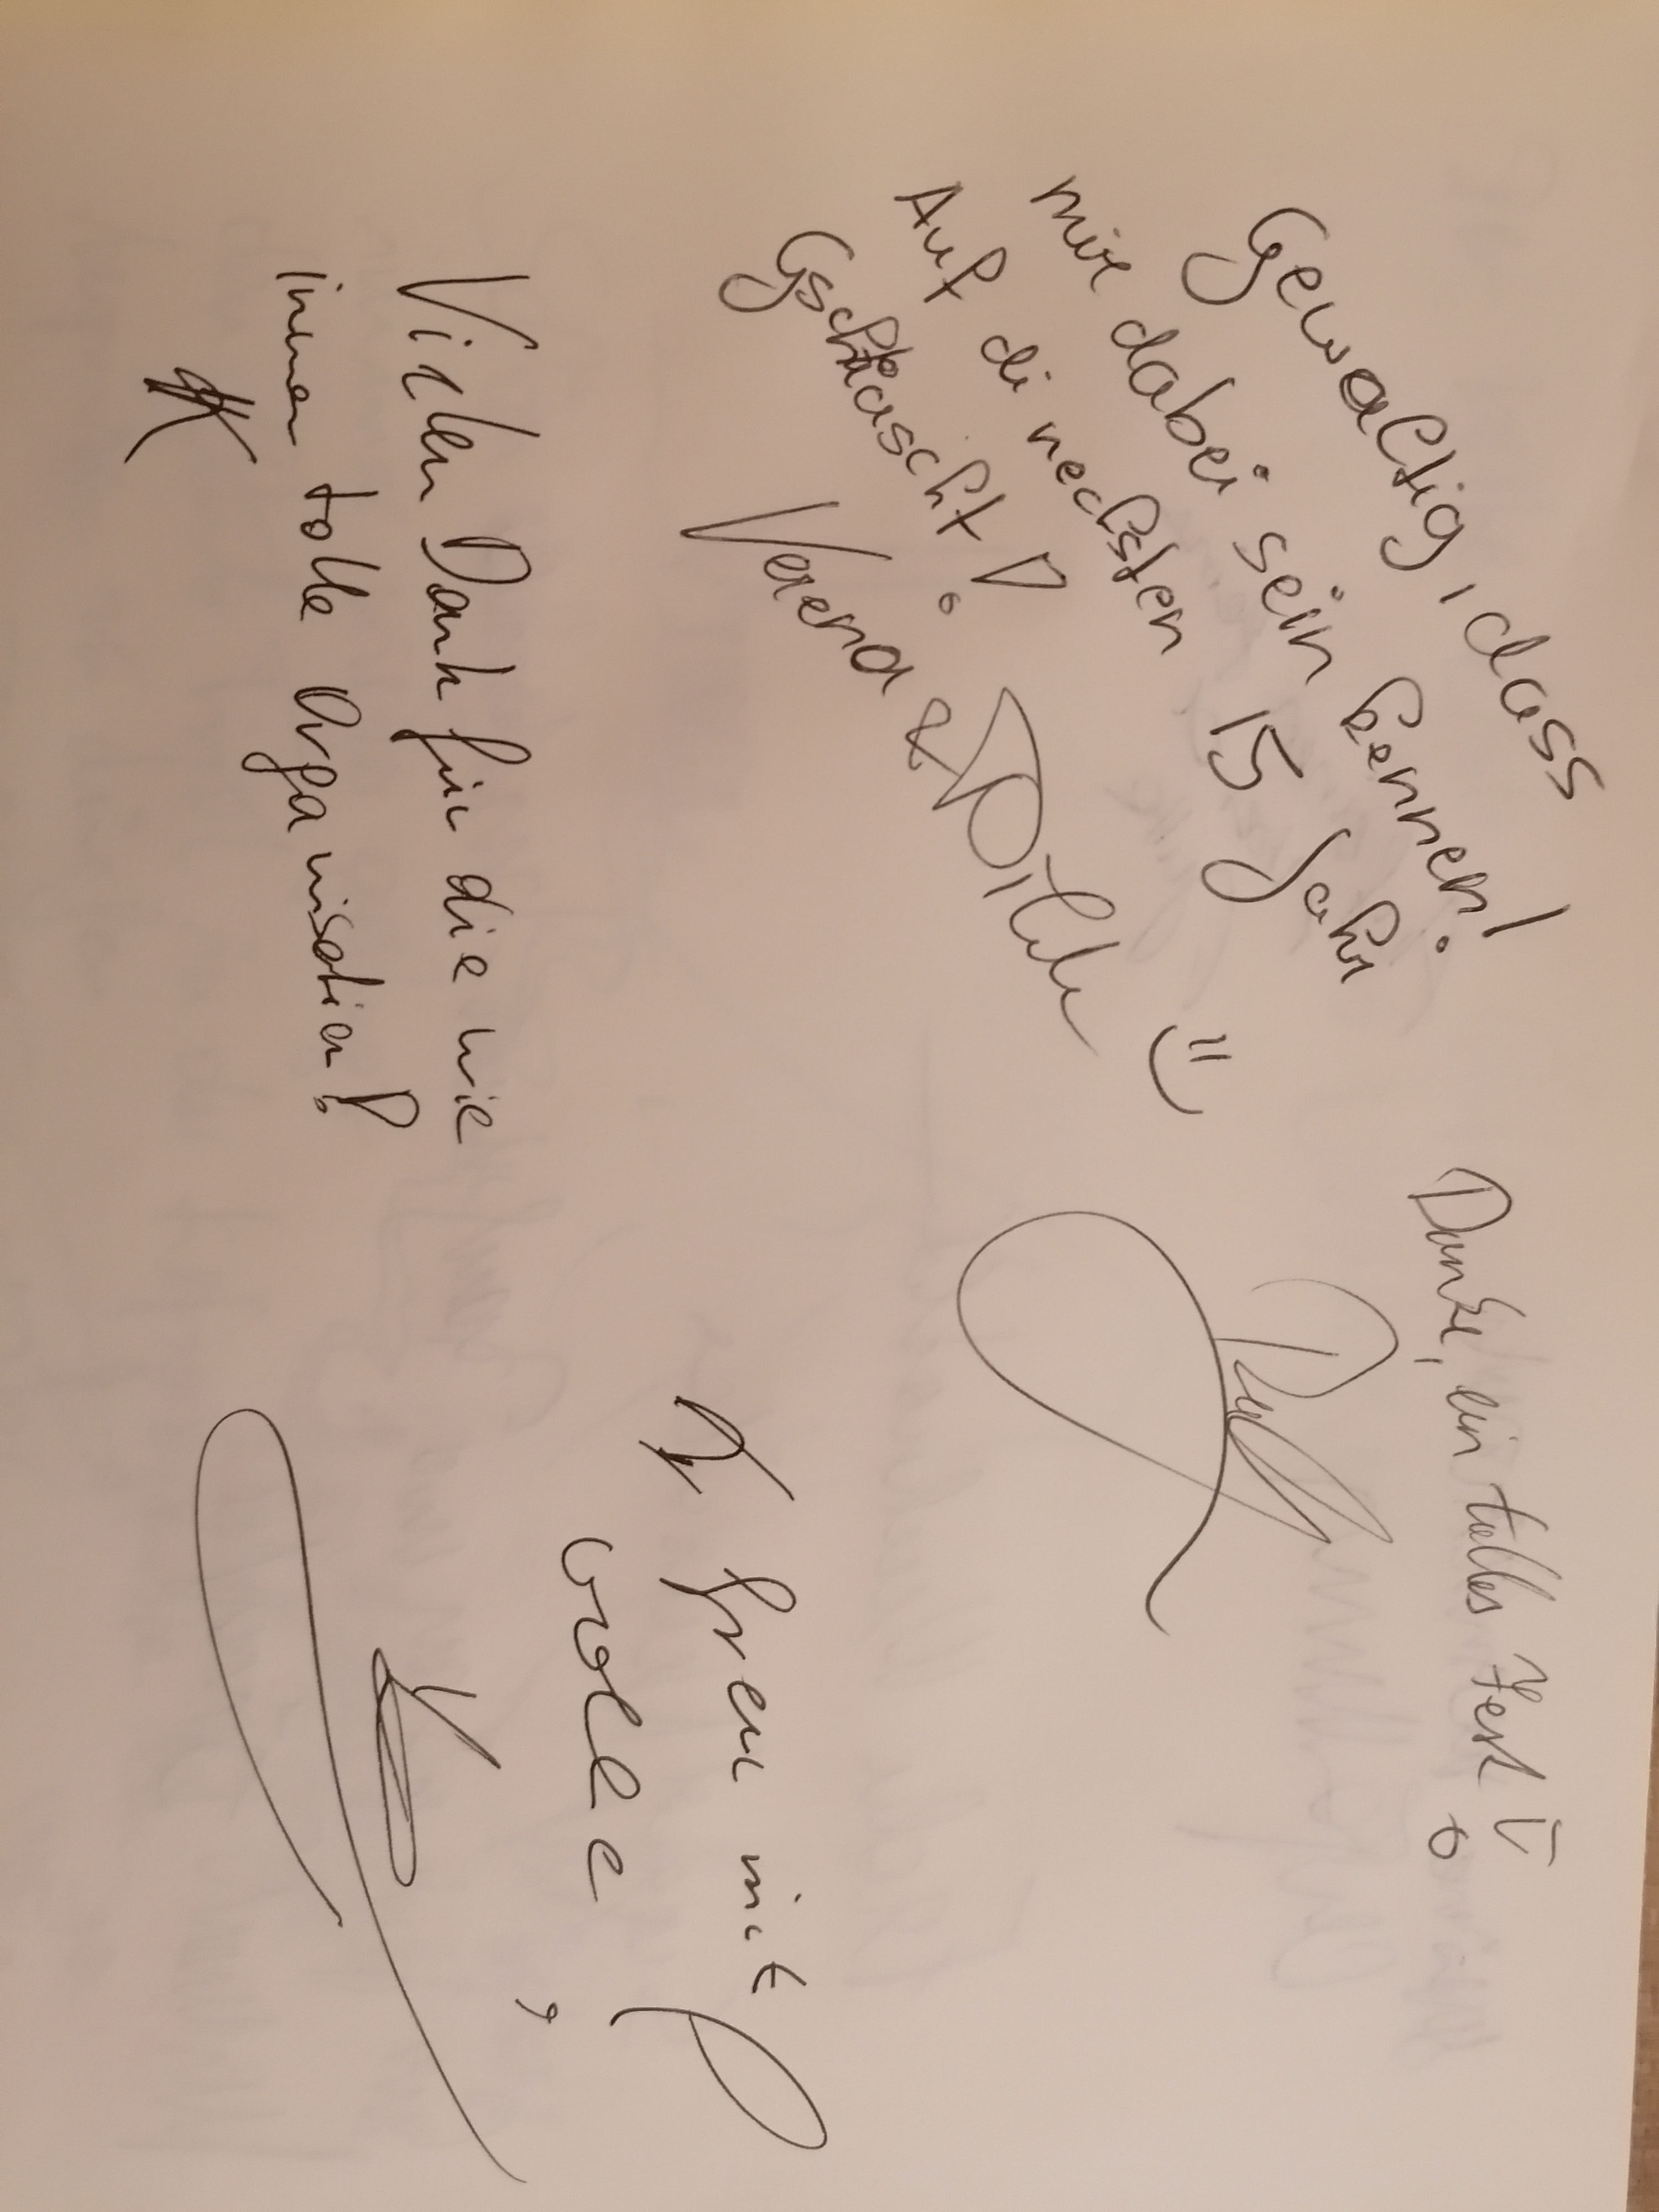 Gewaltig, dass
mir dabei sein kennen!
Auf di nechsten 15 Jahr
Gschtaascht!
Verena &
Vielen Dank für die wie
immer tolle Organisation!
Danke, ein tolles Fest!
freu mit